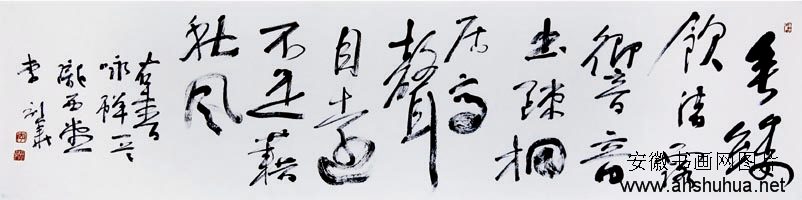 垂緌
飲清露
響音
出疎桐
居高
聲
自遠
不是藉
秋風
右書
咏蟬
李
安徽书画网图片
www.ahshuhua.net